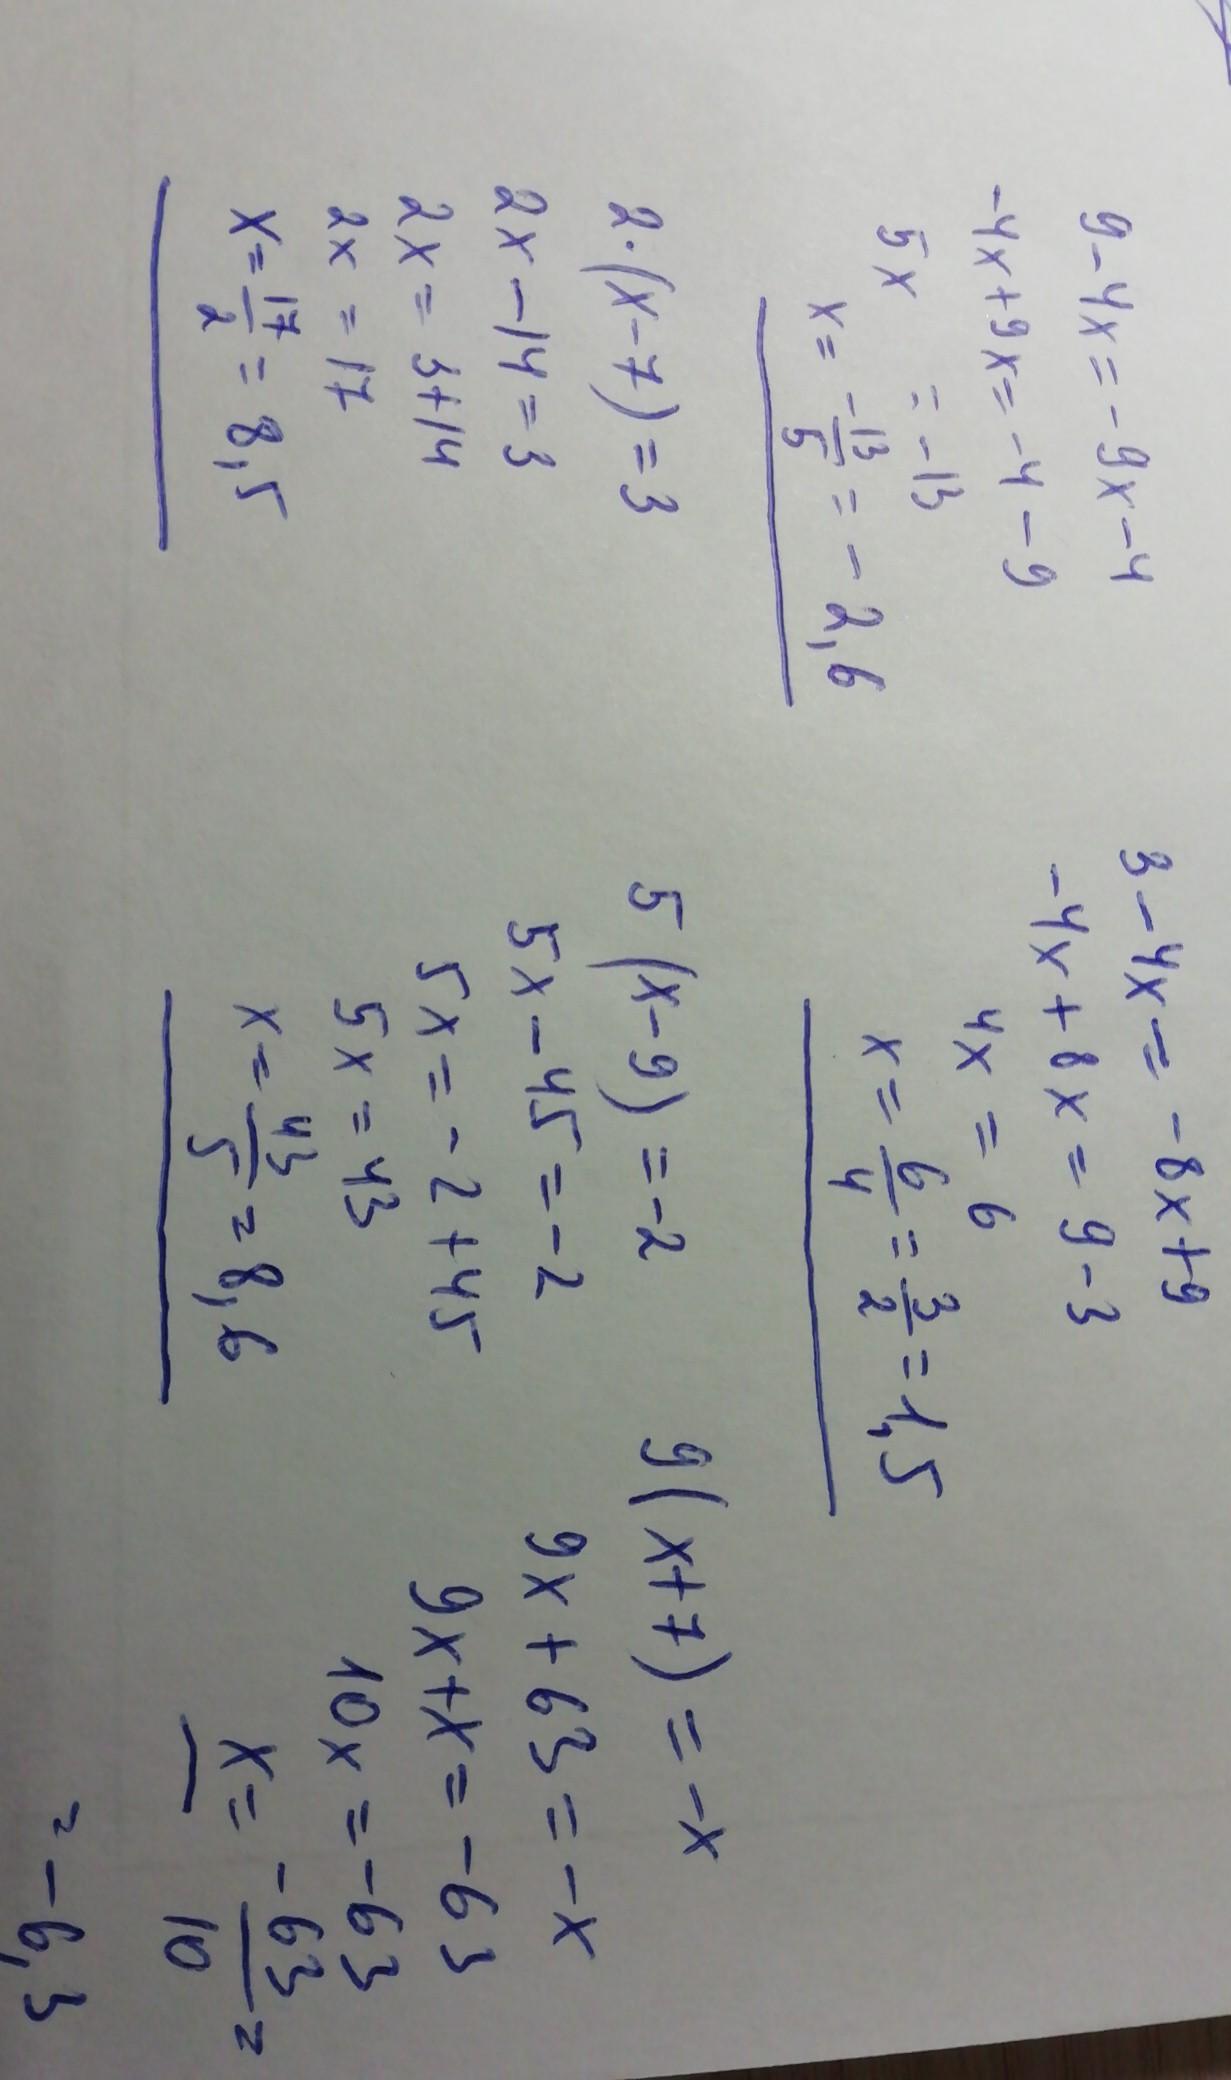 9-4x=-9x-4
-4x+9x=-4-9
5x = -13
x= -13/5 = -2,6
3-4x=-8x+9
-4x+8x=9-3
4x = 6
x= 6/4 = 3/2 = 1,5
2·(x-7)=3
2x-14=3
2x=3+14
2x=17
x= 17/2 = 8,5
5(x-9)=-2
5x-45=-2
5x=-2+45
5x=43
x= 43/5 = 8,6
9(x+7)=-x
9x+63=-x
9x+x=-63
10x=-63
x= -63/10 =
= -6,3